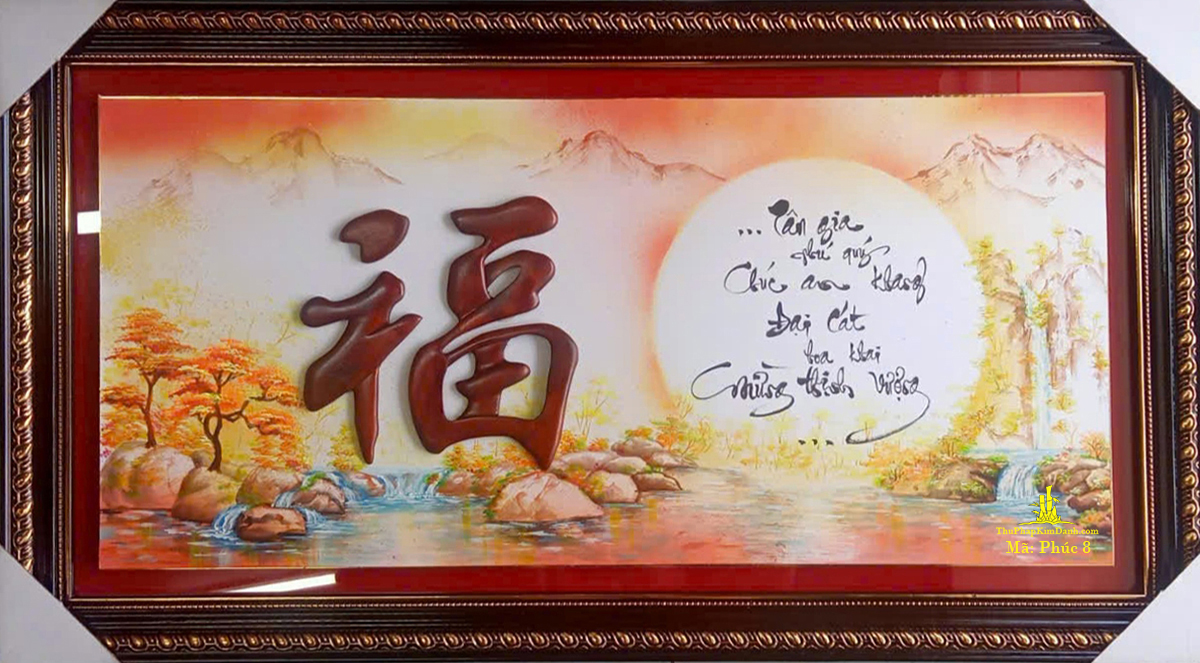 福
... Tân gia
phú quý
Chúc an khang
Đại Cát
hoa khai
Mừng thịnh vượng
...
ThuPhapKimDanh.com
Mã: Phúc 8